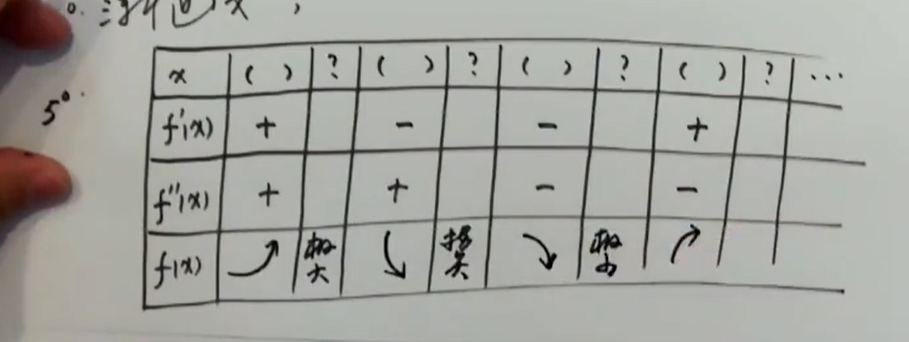 5°
x ( ) ? ( ) ? ( ) ? ( ) ? ...
f'(x) + - - +
f''(x) + + - -
f(x) 极大 拐点 极小